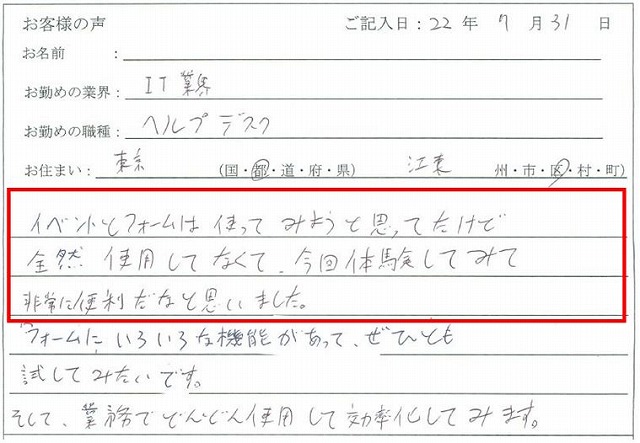 お客様の声 ご記入日：22 年 7 月 31 日
お名前 ：
お勤めの業界： IT 業界
お勤めの職種： ヘルプデスク
お住まい： 東京 (国・都・道・府・県) 江東 州・市・区・村・町)
イベントとフォームは 使って みようと思ってたけど
全然 使用してなくて、今回体験してみて
非常に便利だなと思いました。
フォームに いろいろな機能があって、ぜひとも
試してみたいです。
そして、業務でどんどん使用して効率化してみます。